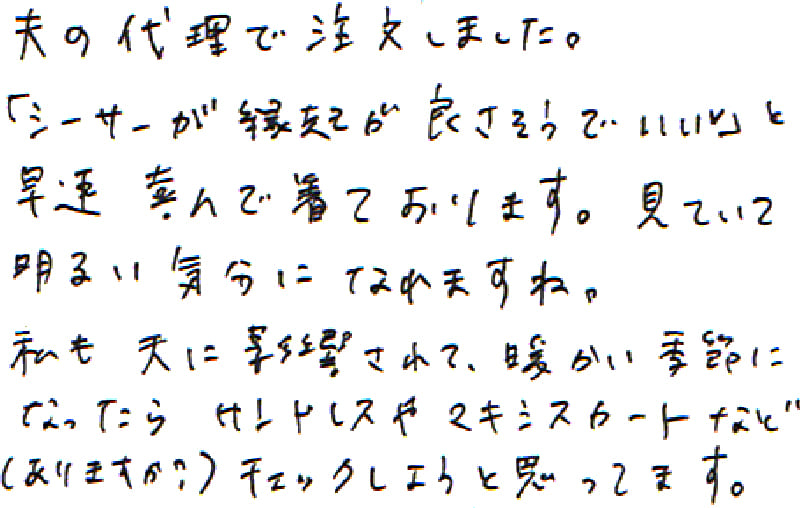 夫の代理で注文しました。
「シーサーが縁起が良さそうでいいい」と
早速喜んで着ております。見ていて
明るい気分になれますね。
私も夫に影響されて、暖かい季節に
なったらサンドレスやマキシスカートなど
(ありますか?)チェックしようと思ってます。